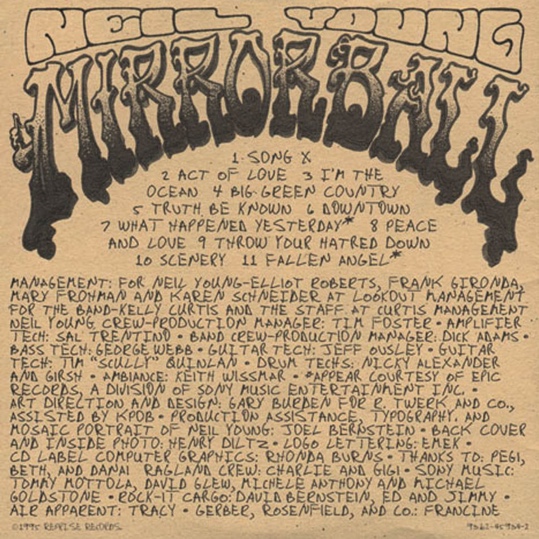 NEIL YOUNG
MIRRORBALL
1 SONG X
2 ACT OF LOVE 3 I'M THE
OCEAN 4 BIG GREEN COUNTRY
5 TRUTH BE KNOWN 6 DOWNTOWN
7 WHAT HAPPENED YESTERDAY* 8 PEACE
AND LOVE 9 THROW YOUR HATRED DOWN
10 SCENERY 11 FALLEN ANGEL*
MANAGEMENT: FOR NEIL YOUNG-ELLIOT ROBERTS, FRANK GIRONDA,
MARY FROHMAN AND KAREN SCHNEIDER AT LOOKOUT MANAGEMENT
FOR THE BAND-KELLY CURTIS AND THE STAFF AT CURTIS MANAGEMENT
NEIL YOUNG CREW-PRODUCTION MANAGER: TIM FOSTER • AMPLIFIER
TECH: SAL TRENTINO • BAND CREW-PRODUCTION MANAGER: DICK ADAMS •
BASS TECH: GEORGE WEBB • GUITAR TECH: JEFF OUSLEY • GUITAR
TECH: TIM "SCULLY" QUINLAN • DRUM TECHS: NICKY ALEXANDER
AND GIRSH • AMBIANCE: KEITH WISSMAR • *APPEAR COURTESY OF EPIC
RECORDS, A DIVISION OF SONY MUSIC ENTERTAINMENT INC. •
ART DIRECTION AND DESIGN: GARY BURDEN FOR R. TWERK AND CO.,
ASSISTED BY KPOB • PRODUCTION ASSISTANCE, TYPOGRAPHY, AND
MOSAIC PORTRAIT OF NEIL YOUNG: JOEL BERNSTEIN • BACK COVER
AND INSIDE PHOTO: HENRY DILTZ • LOGO LETTERING: EMEK •
CD LABEL COMPUTER GRAPHICS: RHONDA BURNS • THANKS TO: PEGI,
BETH, AND DANA RAGLAND CREW: CHARLIE AND GIGI • SONY MUSIC:
TOMMY MOTTOLA, DAVID GLEW, MICHELE ANTHONY AND MICHAEL
GOLDSTONE • ROCK-IT CARGO: DAVID BERNSTEIN, ED AND JIMMY •
AIR APPARENT: TRACY • GERBER, ROSENFIELD, AND CO.: FRANCINE
©1995 REPRISE RECORDS. 9362-45934-2